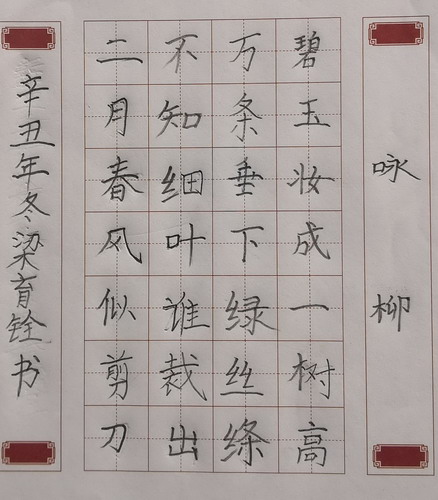 咏柳
碧玉妆成一树高
万条垂下绿丝绦
不知细叶谁裁出
二月春风似剪刀
辛丑年冬梁育铨书